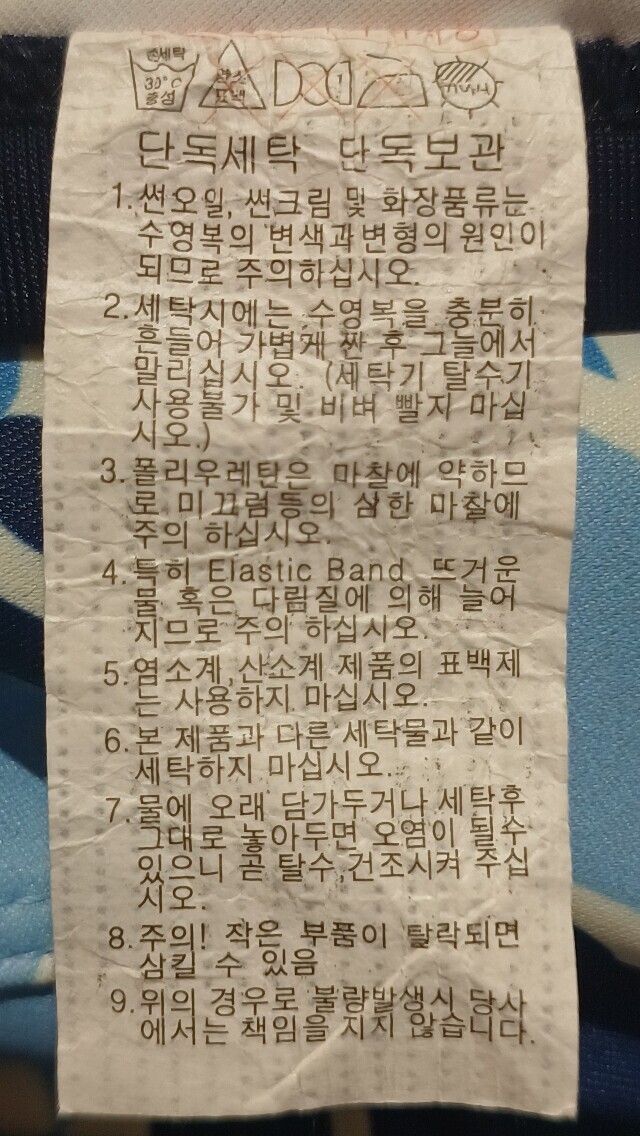 손세탁
30°C
중성
염소
표백
단독세탁 단독보관
1.썬오일, 썬크림 및 화장품류는
수영복의 변색과변형의 원인이
되므로 주의하십시오.
2.세탁시에는 수영복을 충분히
흔들어 가볍게 짠 후 그늘에서
말리십시오. (세탁기 탈수기
사용불가 및 비벼 빨지 마십
시오.)
3.폴리우레탄은 마찰에 약하므
로 미끄럼등의 심한 마찰에
주의 하십시오.
4.특히 Elastic Band 뜨거운
물 혹은 다림질에 의해 늘어
지므로 주의 하십시오.
5.염소계,산소계 제품의 표백제
는 사용하지 마십시오.
6.본 제품과 다른 세탁물과 같이
세탁하지 마십시오.
7.물에 오래 담가두거나 세탁후
그대로 놓아두면 오염이 될수
있으니 곧 탈수,건조시켜 주십
시오.
8.주의! 작은 부품이 탈락되면
삼킬 수 있음
9.위의 경우로 불량발생시 당사
에서는 책임을 지지 않습니다.